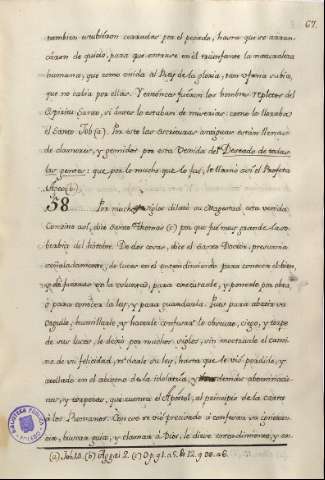 67.
tambien estubieron cerradas por el pecado, hasta que se arran-
càran de quicio, para que entrase en él triunfante la naturaleza
humana, que como unida al Dios de la gloria, tan ufana subía,
que no cabía por ellas. Y entonces fueron los hombres repletos del
Espiritu Santo, si antes lo estaban de miserias: como lo lloraba
el Santo Job (a). Por esto las escrituras antiguas están llenas
de clamores, y gemidos por esta Venida del Deseado de todas
las gentes: que por lo mucho que lo fue, le llamó así el Profeta
Ageo (b).
38 Por muchos siglos dilató su Magestad esta venida.
Convino así, dice Santo Thomas (c) por que fuese grande la so-
berbia del hombre. De dos cosas, dice el Santo Doctor, presumía
señaladamente; de luces en el entendimiento para conocer el bien,
y de fuerzas en la voluntad, para executarle, y ponerle por obra,
ò para conocer la ley, y para guardarla. Pues para abatir su
orgullo, humillarle, y hacerle confesar lo obscuro, ciego, y torpe
de sus luces, le dexó por muchos siglos, sin mostrarle el cami-
no de su felicidad, ni darle su ley, hasta que le vió perdido, y
anegado en el abismo de la idolatría, y demás abominacio-
nes, y torpezas, que cuenta el Apostol, al principio de la carta
à los Romanos. Con eso se vió precisado à confesar su ignoran-
cia, buscar guia, y clamar à Dios, le diese conocimiento, y en
(a) Job. 10. (b) Aggei 2. (c) 3 p. q. 1. a. 5. & 1. 2. q. 98. a. 6.
BIBLIOTECA PUBLICA
TOLEDO